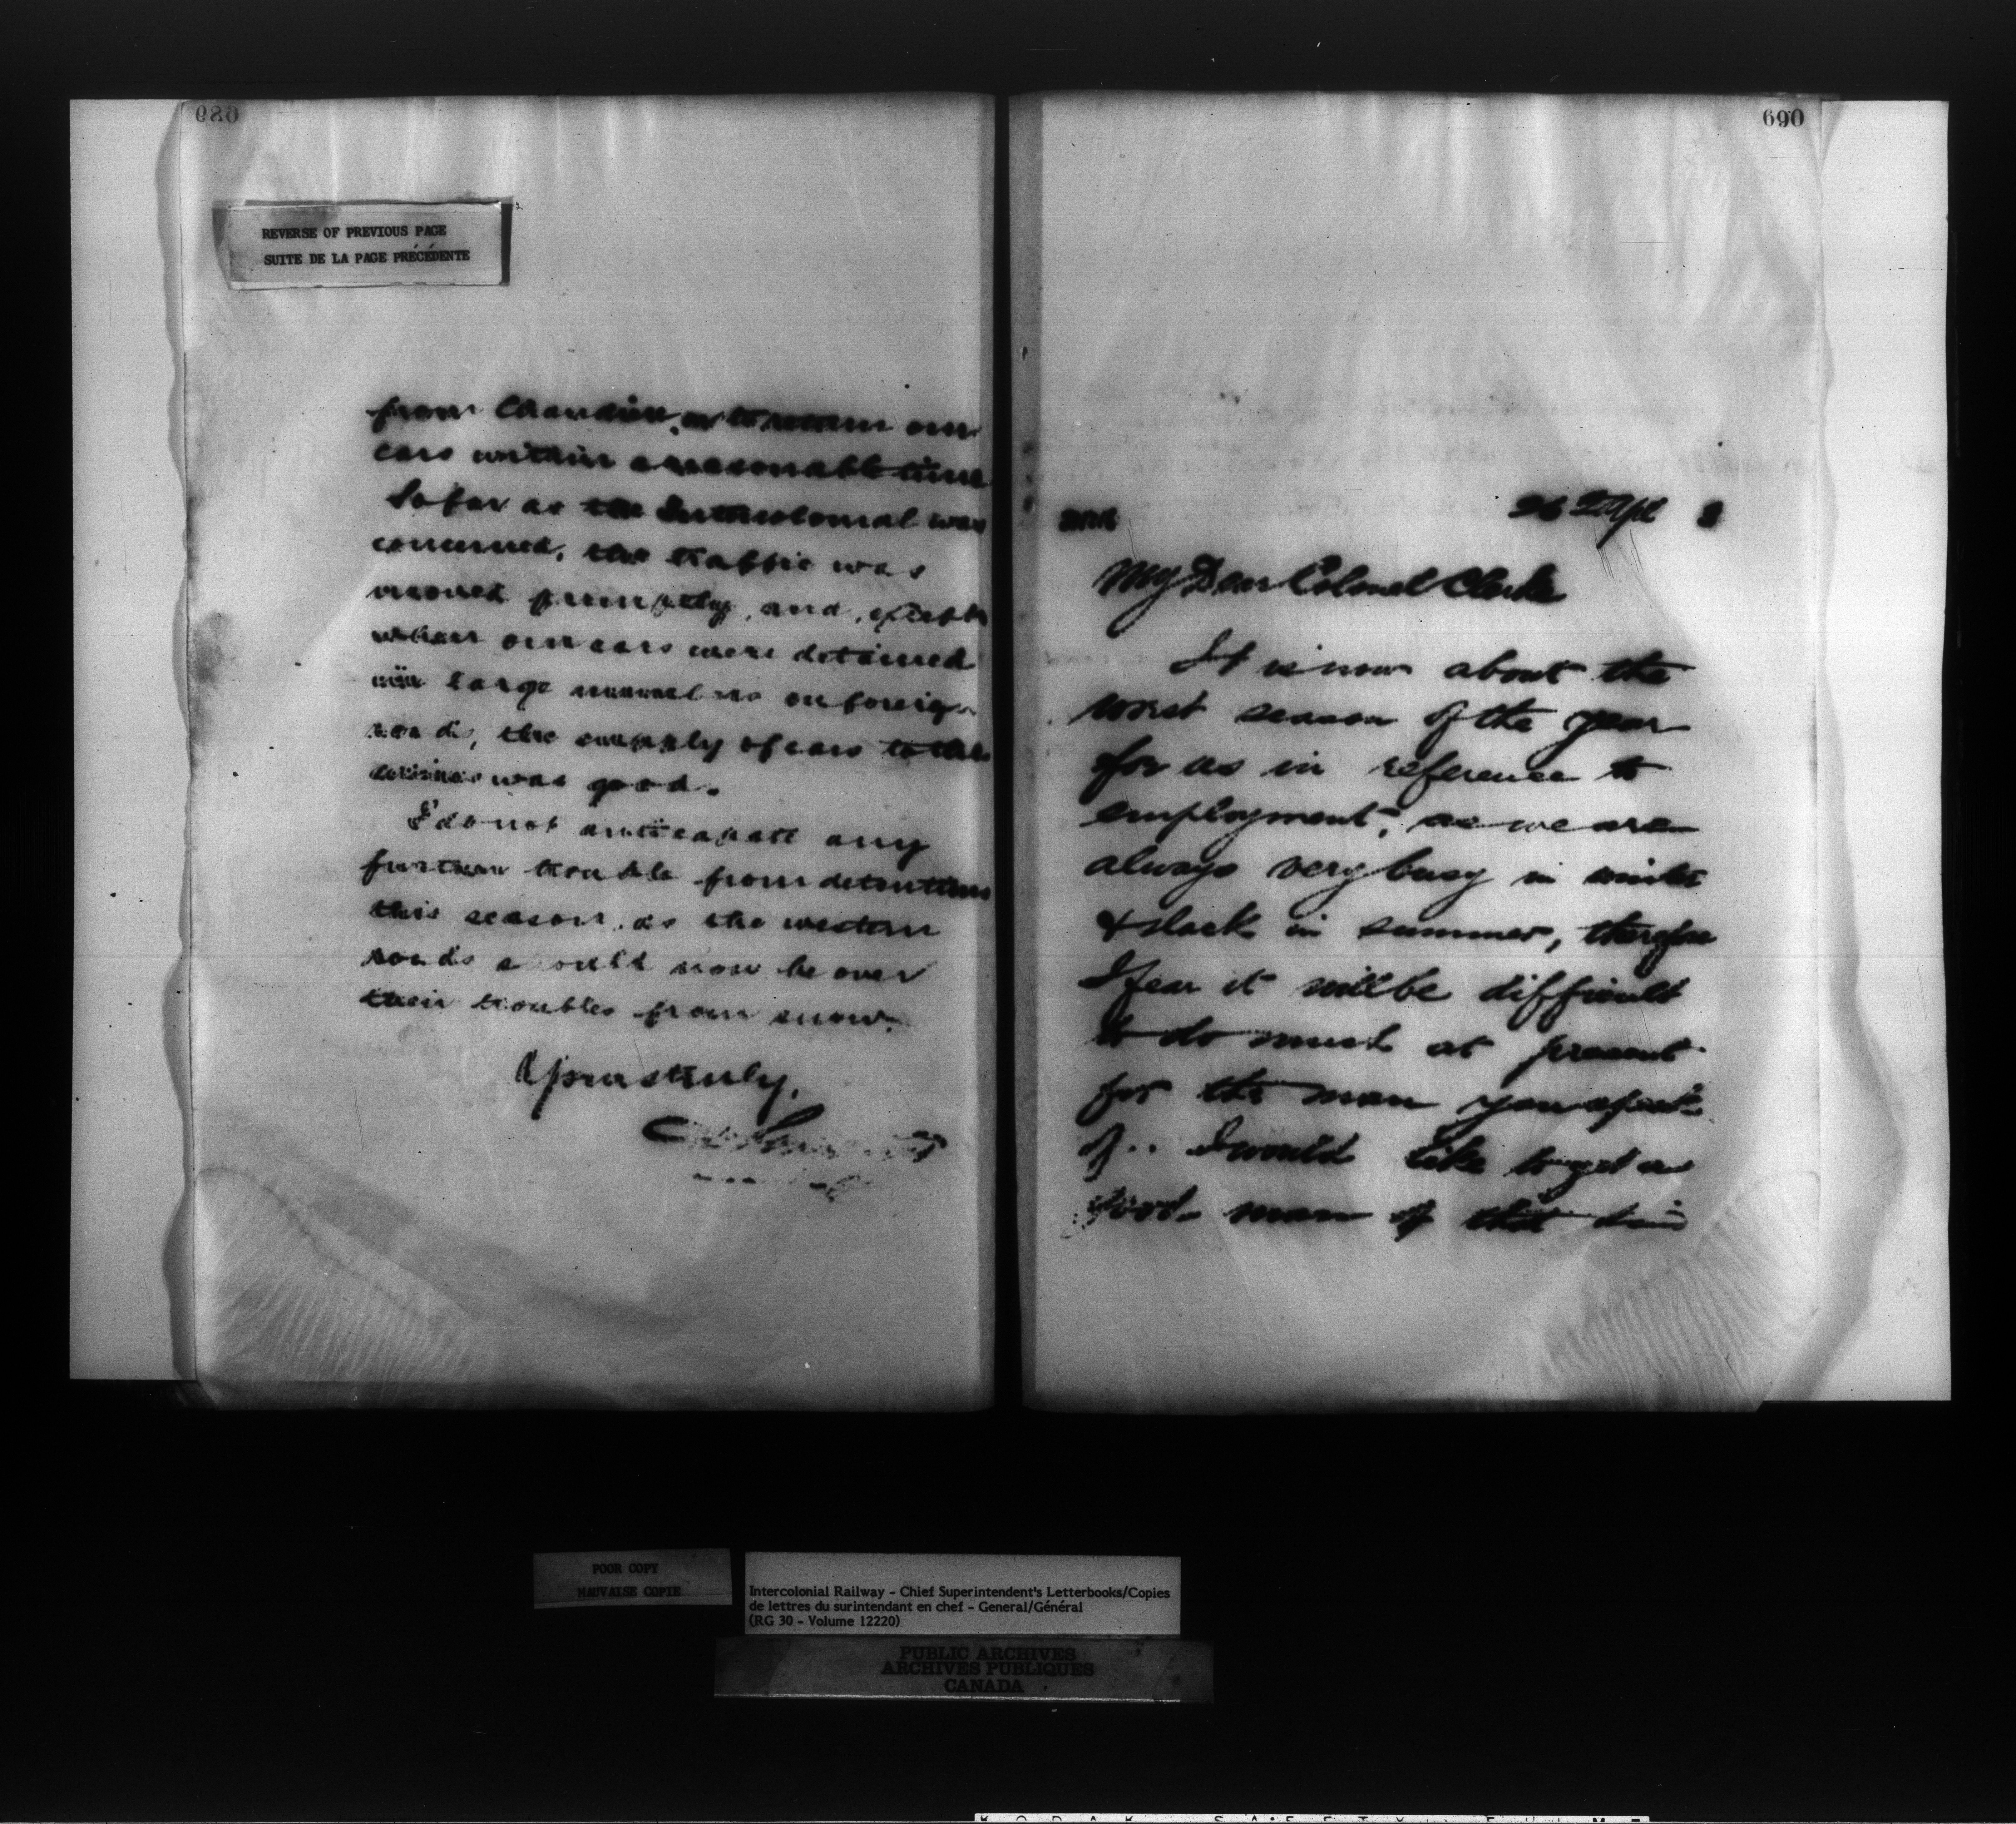 REVERSE OF PREVIOUS PAGE
SUITE DE LA PAGE PRÉCÉDENTE
from Chaudiere, or to return our
cars within a reasonable time
So far as the Intercolonial was
concerned, the traffic was
moved promptly, and, except
when our cars were detained
in large numbers on foreign
roads, the supply of cars to the
was good.
I do not anticipate any
further trouble from detentions
this season, as the western
roads should now be over
their troubles from snow.
Yours truly,
690
26 Apl
My Dear Colonel Clerke
It is now about the
worst season of the year
for us in reference to
employment, as we are
always very busy in winter
& slack in summer, therefore
I fear it will be difficult
to do much at present
for the man you speak
of.. I would like to get a
good man of that
POOR COPY
MAUVAISE COPIE
Intercolonial Railway - Chief Superintendent's Letterbooks/Copies
de lettres du surintendant en chef - General/Général
(RG 30 - Volume 12220)
PUBLIC ARCHIVES
ARCHIVES PUBLIQUES
CANADA